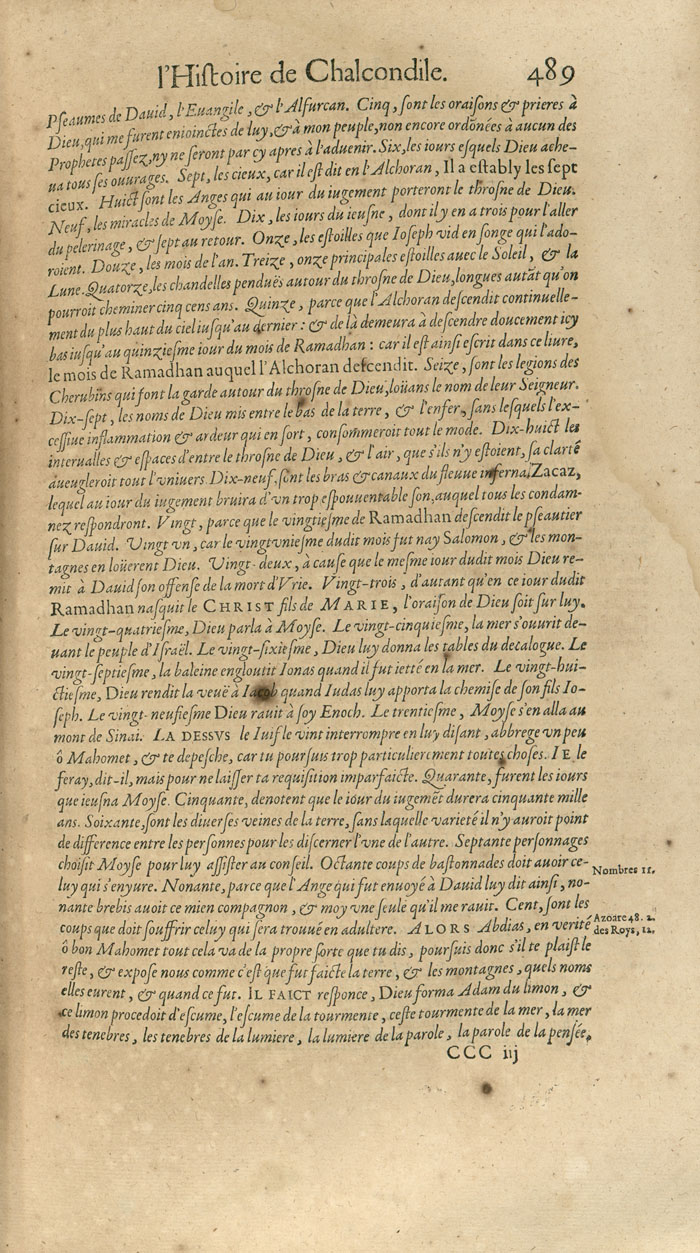 l'Hiſtoire de Chalcondile. 489
Pſeaumes de Dauid, l'Euangile, & l'Alfurcan. Cinq, ſont les oraiſons & prieres à
Dieu, qui me furent enioinctes de luy, & à mon peuple, non encore ordõnées à aucun des
Prophetes paſſez, ny ne ſeront par cy apres à l'aduenir. Six, les iours eſquels Dieu ache-
ua tous ſes ouurages. Sept, les cieux, car il eſt dit en l'Alchoran, Il a eſtably les ſept
cieux. Huict ſont les Anges qui au iour du iugement porteront le throſne de Dieu.
Neuf, les miracles de Moyſe. Dix, les iours du ieuſne, dont il y en a trois pour l'aller
du pelerinage, & ſept au retour. Onze, les eſtoilles que Ioſeph vid en ſonge qui l'ado-
roient. Douze, les mois de l'an. Treize, onze principales eſtoilles auec le Soleil, & la
Lune. Quatorze, les chandelles penduës autour du throſne de Dieu, longues autãt qu'on
pourroit cheminer cinq cens ans. Quinze, parce que l'Alchoran deſcendit continuelle-
ment du plus haut du ciel iuſqu'au dernier : & de là demeura à deſcendre doucement icy
bas iuſqu'au quinzieſme iour du mois de Ramadhan : car il eſt ainſi eſcrit dans ce liure,
le mois de Ramadhan auquel l'Alchoran deſcendit. Seize, ſont les legions des
Cherubins qui font la garde autour du throſne de Dieu, loüans le nom de leur Seigneur.
Dix-ſept, les noms de Dieu mis entre le bas de la terre, & l'enfer, ſans leſquels l'ex-
ceſſiue inflammation & ardeur qui en ſort, conſommeroit tout le mõde. Dix-huict les
interualles & eſpaces d'entre le throſne de Dieu, & l'air, que s'ils n'y eſtoient, ſa clarté
aueugleroit tout l'vniuers. Dix-neuf, ſont les bras & canaux du fleuue infernal Zacaz,
lequel au iour du iugement bruira d'vn trop eſpouuentable ſon, auquel tous les condam-
nez reſpondront. Vingt, parce que le vingtieſme de Ramadhan deſcendit le pſeautier
ſur Dauid. Vingt vn, car le vingtvnieſme dudit mois fut nay Salomon, & les mon-
tagnes en loüerent Dieu. Vingt-deux, à cauſe que le meſme iour dudit mois Dieu re-
mit à Dauid ſon offenſe de la mort d'Vrie. Vingt-trois, d'autant qu'en ce iour dudit
Ramadhan naſquit le CHRIST fils de MARIE, l'oraiſon de Dieu ſoit ſur luy.
Le vingt-quatrieſme, Dieu parla à Moyſe. Le vingt-cinquieſme, la mer s'ouurit de-
uant le peuple d'Iſraël. Le vingt-ſixieſme, Dieu luy donna les tables du decalogue. Le
vingt-ſeptieſme, la baleine engloutit Ionas quand il fut ietté en la mer. Le vingt-hui-
ctieſme, Dieu rendit la veuë à Iacob quand Iudas luy apporta la chemiſe de ſon fils Io-
ſeph. Le vingt-neufieſme Dieu rauit à ſoy Enoch. Le trentieſme, Moyſe s'en alla au
mont de Sinai. LA DESSVS le Iuif le vint interrompre en luy diſant, abbrege vn peu
ô Mahomet, & te depeſche, car tu pourſuis trop particulierement toutes choſes. IE le
feray, dit-il, mais pour ne laiſſer ta requiſition imparfaicte. Quarante, furent les iours
que ieuſna Moyſe. Cinquante, denotent que le iour du iugemẽt durera cinquante mille
ans. Soixante, ſont les diuerſes veines de la terre, ſans laquelle varieté il n'y auroit point
de difference entre les perſonnes pour les diſcerner l'vne de l'autre. Septante perſonnages
choiſit Moyſe pour luy aſſiſter au conſeil. Octante coups de baſtonnades doit auoir ce-
Nombres 11.
luy qui s'enyure. Nonante, parce que l'Ange qui fut enuoyé à Dauid luy dit ainſi, no-
nante brebis auoit ce mien compagnon, & moy vne ſeule qu'il me rauit. Cent, ſont les
Azoare 48. 2.
coups que doit ſouffrir celuy qui ſera trouué en adultere. ALORS Abdias, en verité
des Roys, 12.
ô bon Mahomet tout cela va de la propre ſorte que tu dis, pourſuis donc s'il te plaiſt le
reſte, & expoſe nous comme c'eſt que fut faicte la terre, & les montagnes, quels noms
elles eurent, & quand ce fut. IL FAICT reſponce, Dieu forma Adam du limon, &
ce limon procedoit d'eſcume, l'eſcume de la tourmente, ceſte tourmente de la mer, la mer
des tenebres, les tenebres de la lumiere, la lumiere de la parole, la parole de la penſée,
CCC iij